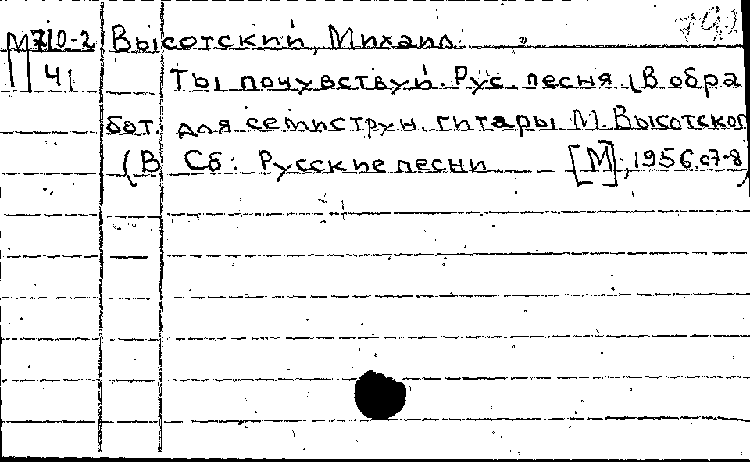 М710-2 Высотский, Михаил.
41 Ты почувствуй. Рус. песня (В обра
бот. для семиструн. гитары М. Высотског
(В Сб: Русские песни [М], 1956. с7-8)